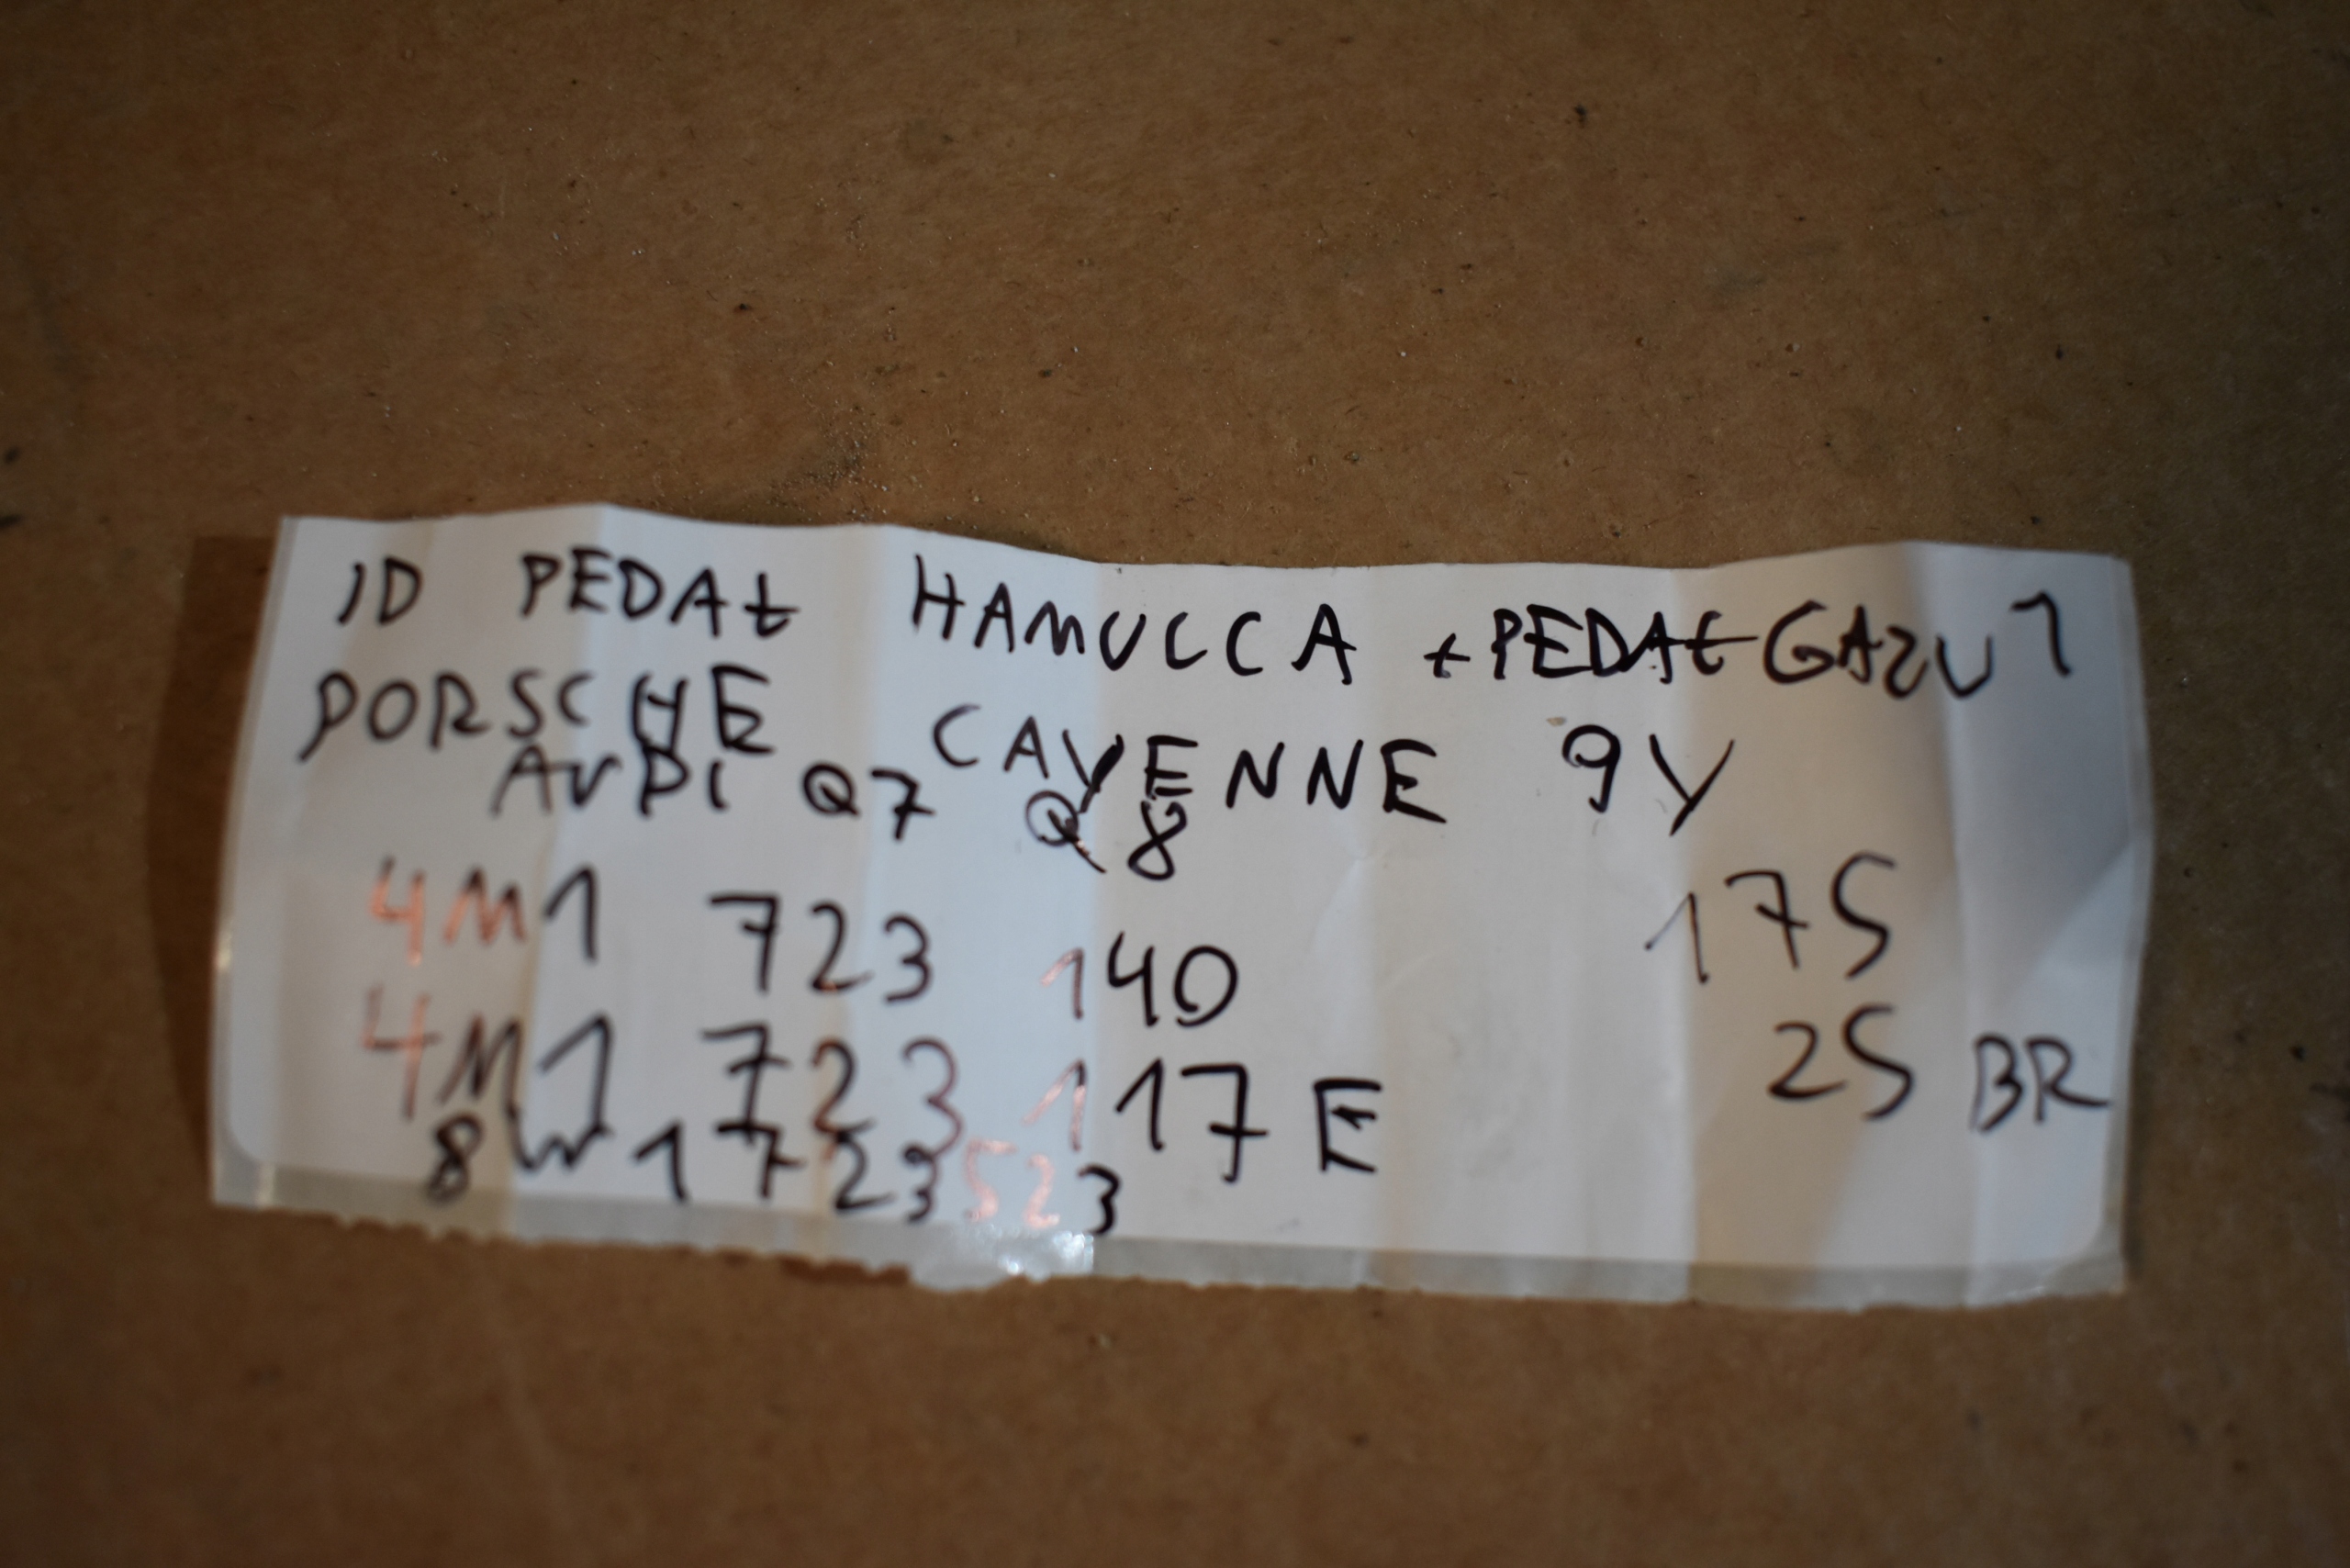 ID PEDAŁ HAMULCA + PEDAŁ GAZU 1
PORSCHE CAYENNE 9Y
AUDI Q7 Q8
4M1 723 140 175
4M1 723 117 E 25 BR
8W1 723 523